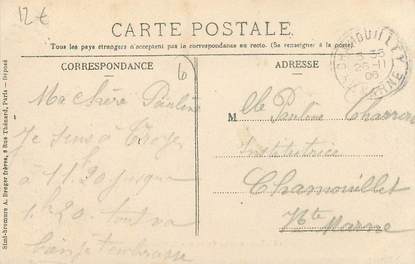 12€
CARTE POSTALE
Tous les pays étrangers n'acceptent pas la correspondance au recto. (Se renseigner à la poste).
CORRESPONDANCE
ADRESSE
6
CHAMOUILLEY
26-11
06
MARNE
Ma chère Pauline
Je suis à Troyes
à 11.20 jusque
1h20. tout va
bien je t'embrasse
Mlle Pauline Charron
Institutrice
Chamouillet
Hte Marne
Simil-bromure A. Breger frères, 9 Rue Thénard, Paris — Déposé